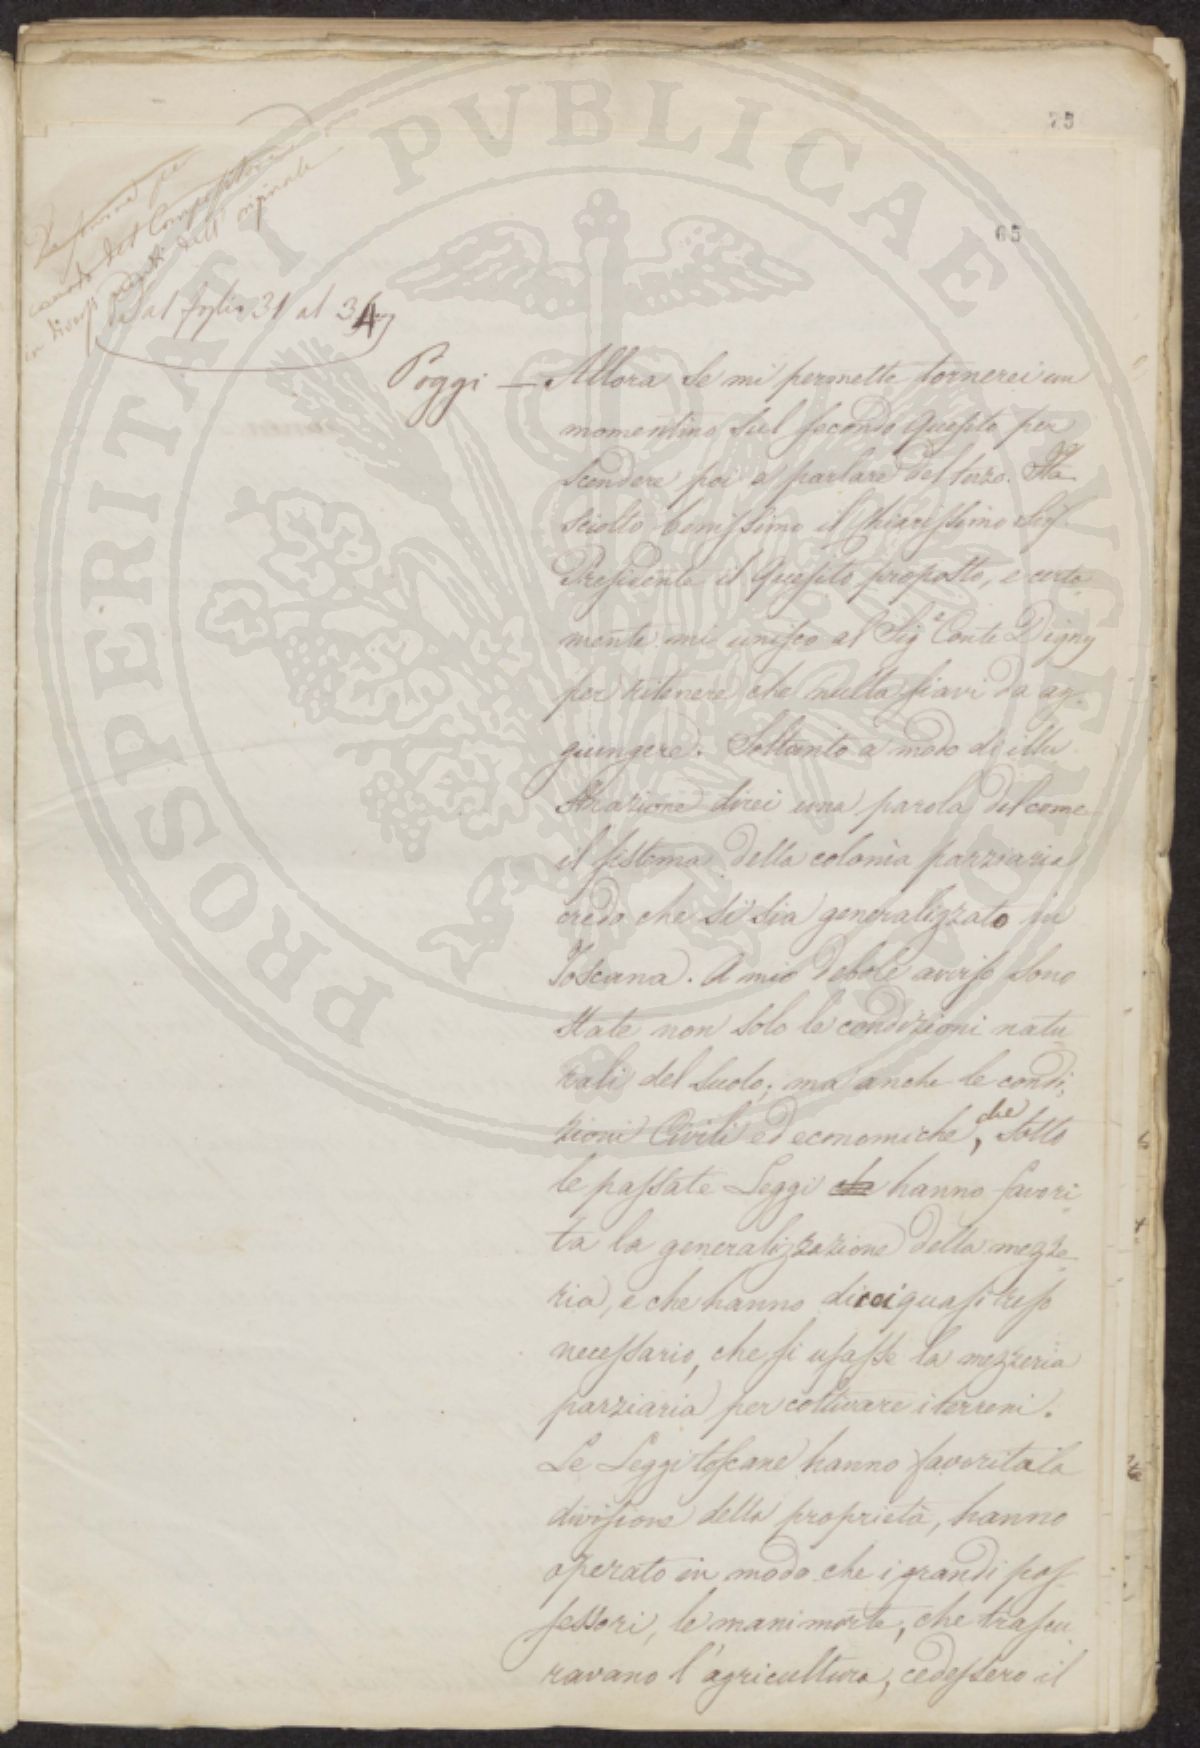 75
65
PROSPERITATI PVBLICAE AVGENDAE
conto del Compositore
in diversi dell' originale
Dal foglio 31 al 34
Poggi — Allora se mi permette tornerei un
momentino sul secondo Quesito per
scendere poi a parlare del terzo. Ha
sciolto benissimo il Chiarissimo Sig.
Presidente il Quesito proposto, e certa
mente mi unisco al Sigr. Conte Digny
per ritenere che nulla siavi da ag-
giungere. Soltanto a modo di illu
strazione direi una parola del come
il sistema della colonìa parziaria
credo che si sia generalizzato in
Toscana. A mio debole avviso sono
state non solo le condizioni natu
rali del suolo; ma anche le condi
zioni Civili ed economiche, che sotto
le passate Leggi che hanno favori
ta la generalizzazione della mezze
ria, e che hanno direi quasi reso
necessario, che si usasse la mezzeria
parziaria per coltivare i terreni.
Le Leggi toscane hanno favorita la
divisione della proprietà, hanno
operato in modo che i grandi pos-
sessori, le mani morte, che trascu
ravano l'agricoltura, cedessero il